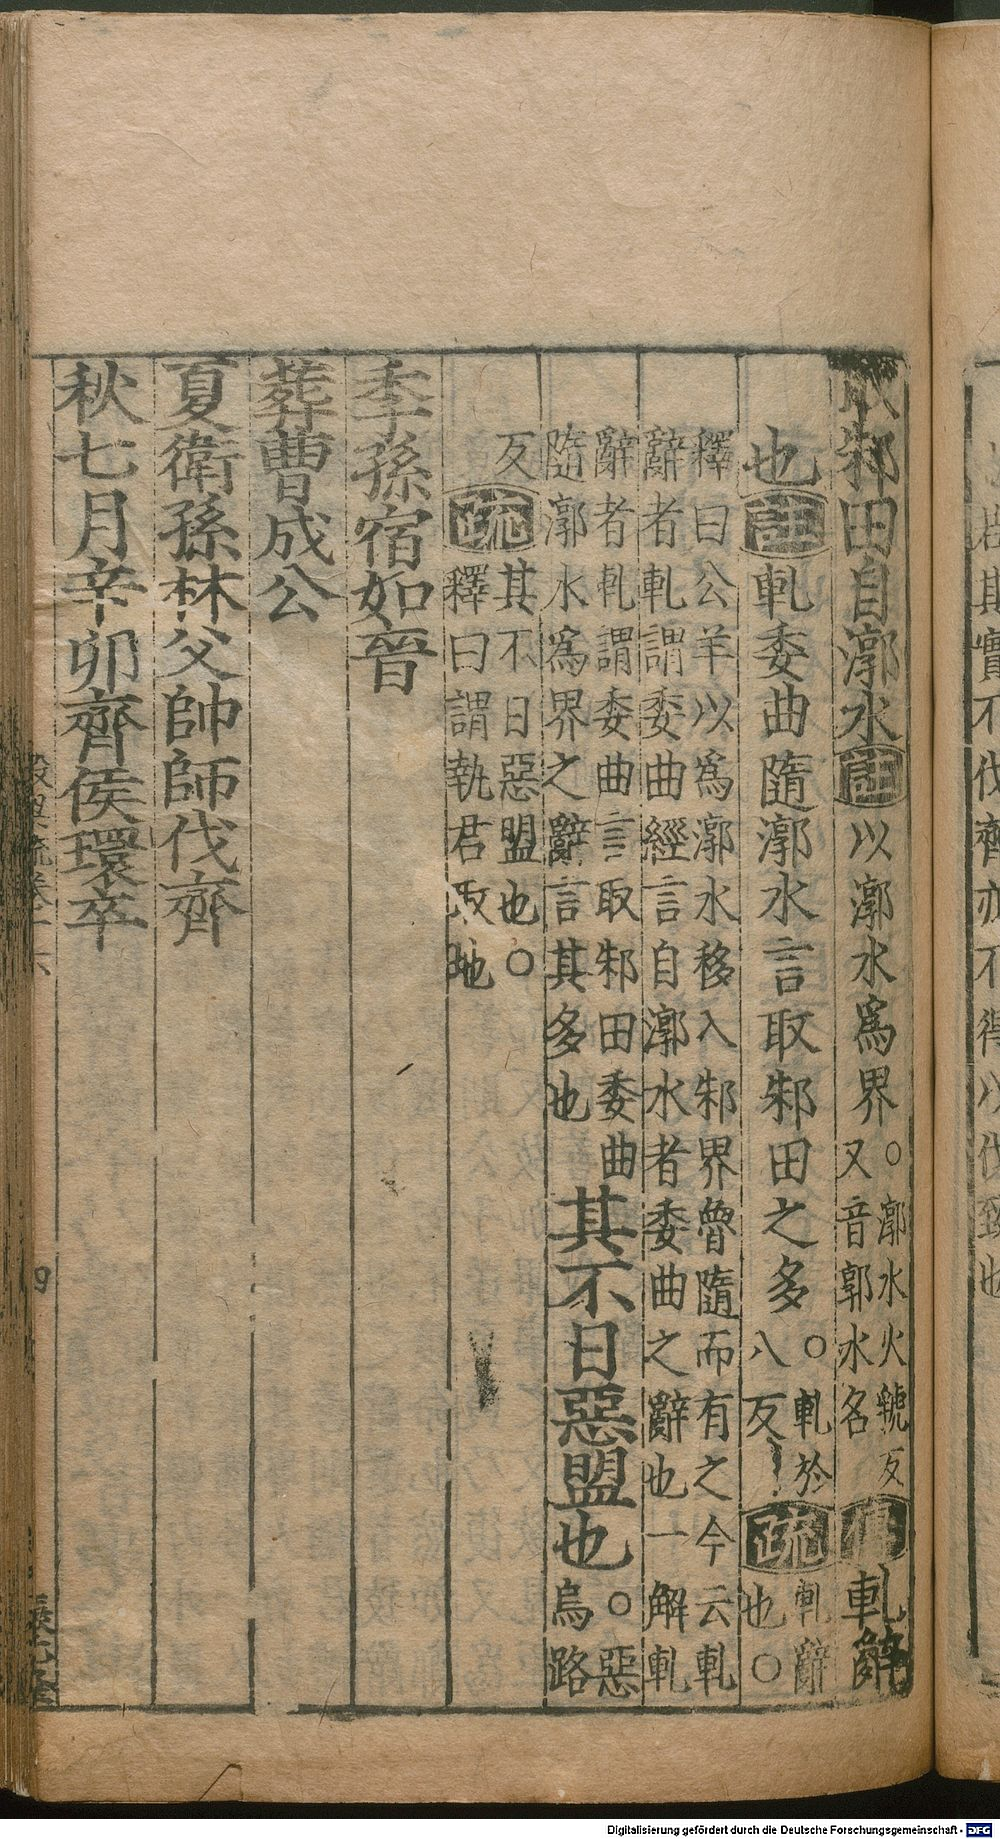 取邾田自漷水註以漷水爲界○漷水火虢反又音郭水名傳軋辭
也註軋委曲隨漷水言取邾田之多○軋於八反疏軋辭也○
釋曰公羊以爲漷水移入邾界魯隨而有之今云軋
辭者軋謂委曲經言自漷水者委曲之辭也一解軋
辭者軋謂委曲言取邾田委曲
隨漷水爲界之辭言其多也其不日惡盟也○惡烏路
反疏其不日惡盟也○釋曰謂執君取地
季孫宿如晉
葬曹成公
夏衛孫林父帥師伐齊
秋七月辛卯齊侯環卒
四
君其實不伐齊亦不得以伐致也
Digitalisierung gefördert durch die Deutsche Forschungsgemeinschaft - DFG